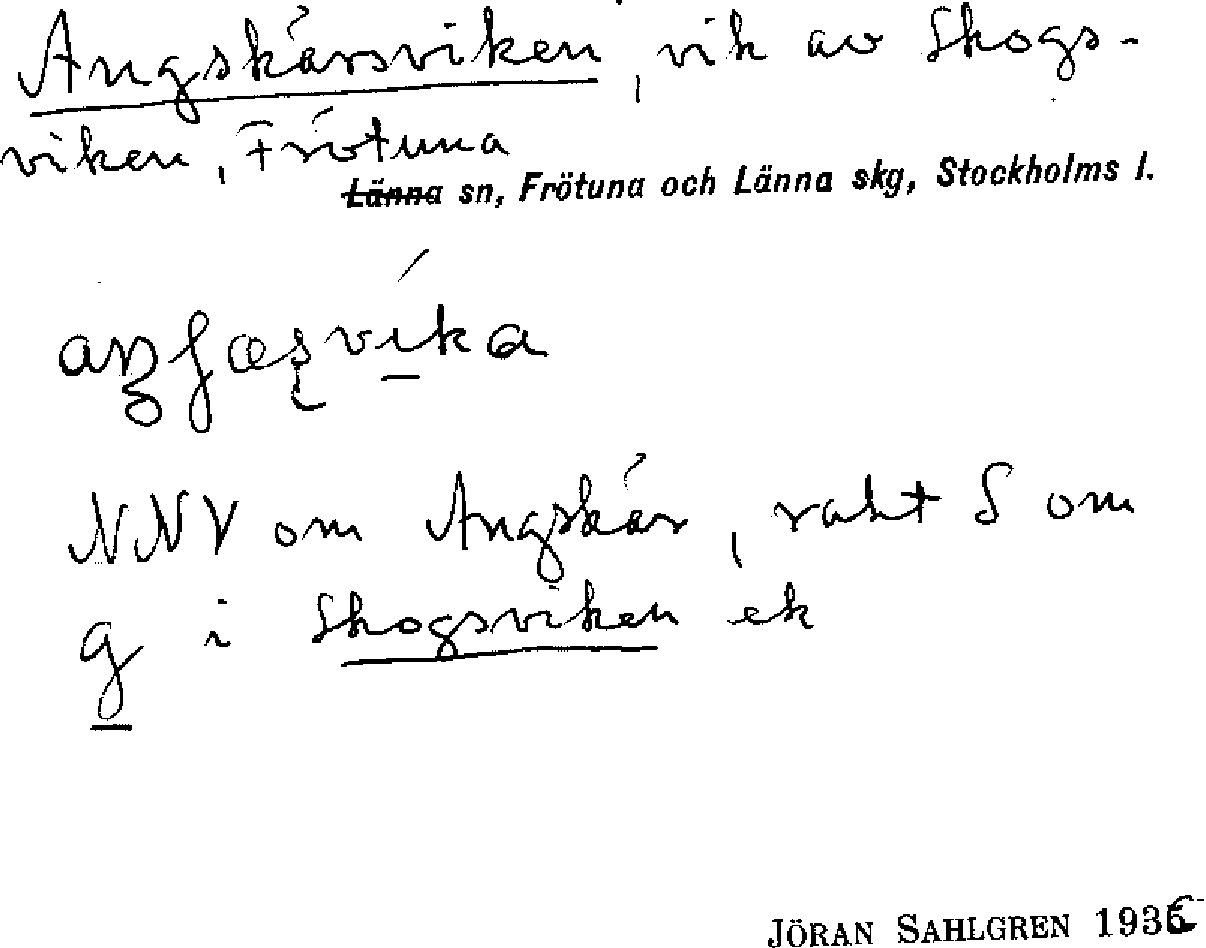 Angskärsviken, vik av Skogs-
viken, Frötuna
Länna sn, Frötuna och Länna skg, Stockholms l.
NNV om Angskär, rakt S om
g i Skogsviken ek
JÖRAN SAHLGREN 1936